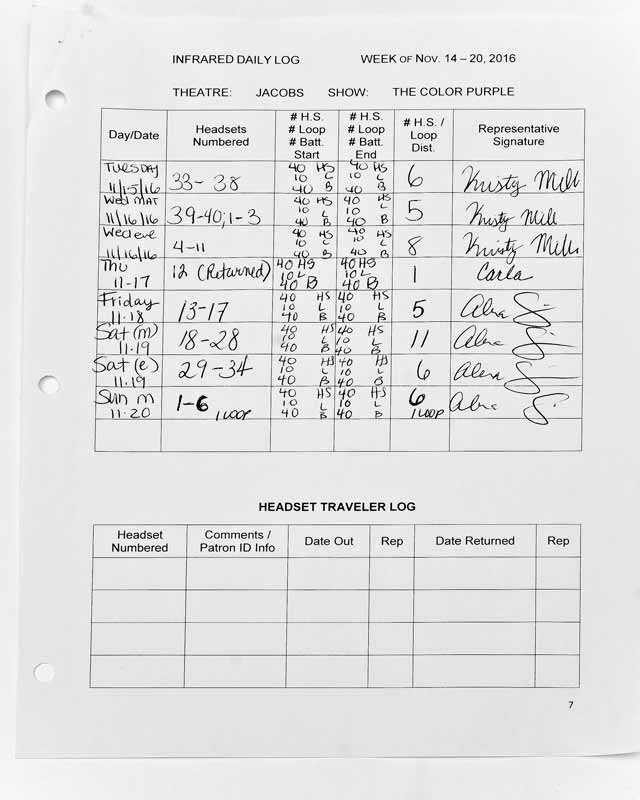 INFRARED DAILY LOG WEEK OF NOV. 14 – 20, 2016
THEATRE: JACOBS SHOW: THE COLOR PURPLE
Day/Date Headsets Numbered # H.S. # Loop # Batt. Start # H.S. # Loop # Batt. End # H.S. / Loop Dist. Representative Signature
TUESDAY 11/15/16 33-38 40 HS 10 L 40 B 40 HS 10 L 40 B 6 Kristy Mill
Wed MAT 11/16/16 39-40; 1-3 40 HS 10 L 40 B 40 HS 10 L 40 B 5 Kristy Mill
Wed eve 11/16/16 4-11 40 HS 10 L 40 B 40 HS 10 L 40 B 8 Kristy Mills
Thu 11-17 12 (Returned) 40 HS 10 L 40 B 40 HS 10 L 40 B 1 Carla
Friday 11.18 13-17 40 HS 10 L 40 B 40 HS 10 L 40 B 5
Sat (m) 11.19 18-28 40 HS 10 L 40 B 40 HS 10 L 40 B 11
Sat (e) 11.19 29-34 40 HS 10 L 40 B 40 HS 10 L 40 B 6
Sun m 11.20 1-6 1 LOOP 40 HS 10 L 40 B 40 HS 10 L 40 B 6 1 LOOP
HEADSET TRAVELER LOG
Headset Numbered Comments / Patron ID Info Date Out Rep Date Returned Rep
7